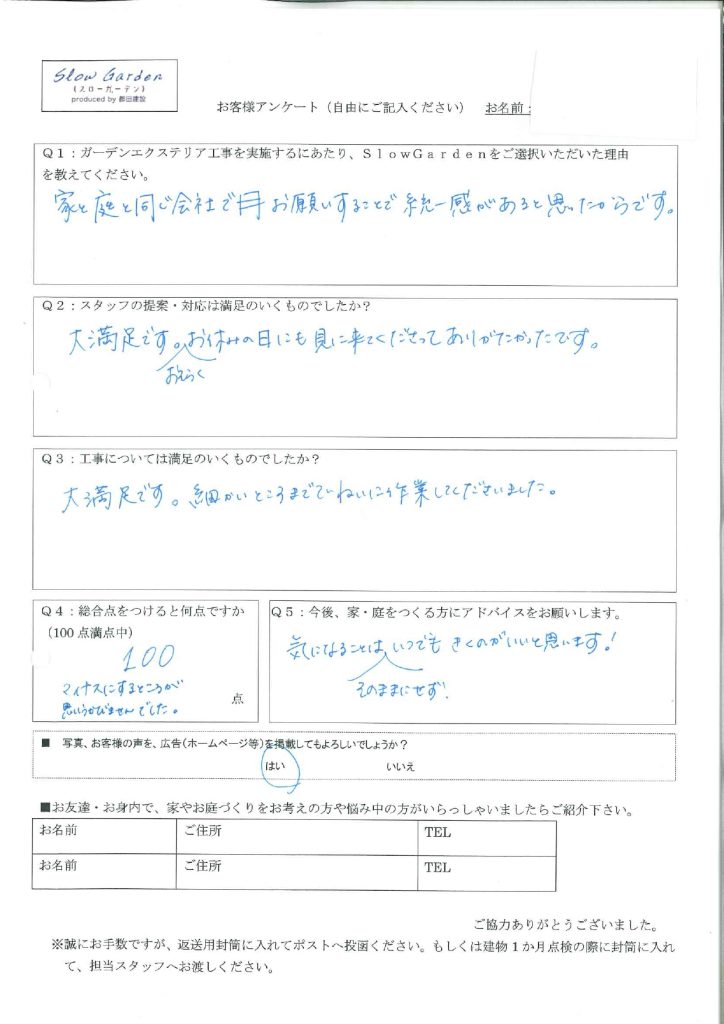 Slow Garden
(スローガーデン)
produced by 都田建設
お客様アンケート（自由にご記入ください） お名前：
Q1：ガーデンエクステリア工事を実施するにあたり、SlowGardenをご選択いただいた理由
を教えてください。
家と庭と同じ会社で お願いすることで統一感があると思ったからです。
Q2：スタッフの提案・対応は満足のいくものでしたか？
大満足です。お休みの日にも見に来てくださってありがたかったです。
おそらく
Q3：工事については満足のいくものでしたか？
大満足です。細かいところまでていねいに作業してくださいました。
Q4：総合点をつけると何点ですか
（100点満点中）
100
マイナスにするところが
思いうかびませんでした。
点
Q5：今後、家・庭をつくる方にアドバイスをお願いします。
気になることは いつでも きくのがいいと思います！
そのままにせず！
■ 写真、お客様の声を、広告（ホームページ等）を掲載してもよろしいでしょうか？
はい いいえ
■お友達・お身内で、家やお庭づくりをお考えの方や悩み中の方がいらっしゃいましたらご紹介下さい。
お名前 ご住所 TEL
お名前 ご住所 TEL
ご協力ありがとうございました。
※誠にお手数ですが、返送用封筒に入れてポストへ投函ください。もしくは建物1か月点検の際に封筒に入れ
て、担当スタッフへお渡しください。